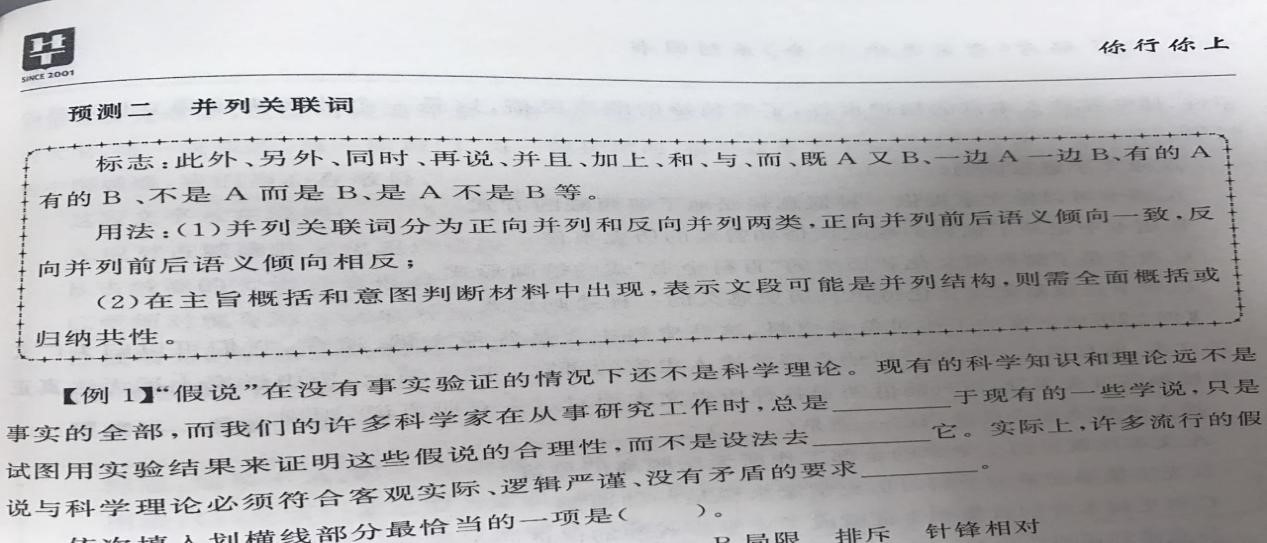 HT
SINCE 2001
你行你上
预测二 并列关联词
标志:此外、另外、同时、再说、并且、加上、和、与、而、既 A 又 B、一边 A 一边 B、有的 A
有的 B 、不是 A 而是 B、是 A 不是 B 等。
用法:(1)并列关联词分为正向并列和反向并列两类,正向并列前后语义倾向一致,反
向并列前后语义倾向相反;
(2)在主旨概括和意图判断材料中出现,表示文段可能是并列结构,则需全面概括或
归纳共性。
【例 1】“假说”在没有事实验证的情况下还不是科学理论。现有的科学知识和理论远不是
事实的全部,而我们的许多科学家在从事研究工作时,总是________于现有的一些学说,只是
试图用实验结果来证明这些假说的合理性,而不是设法去________它。实际上,许多流行的假
说与科学理论必须符合客观实际、逻辑严谨、没有矛盾的要求________。
依次填入划横线部分最恰当的一项是( )。
B 局限 排斥 针锋相对